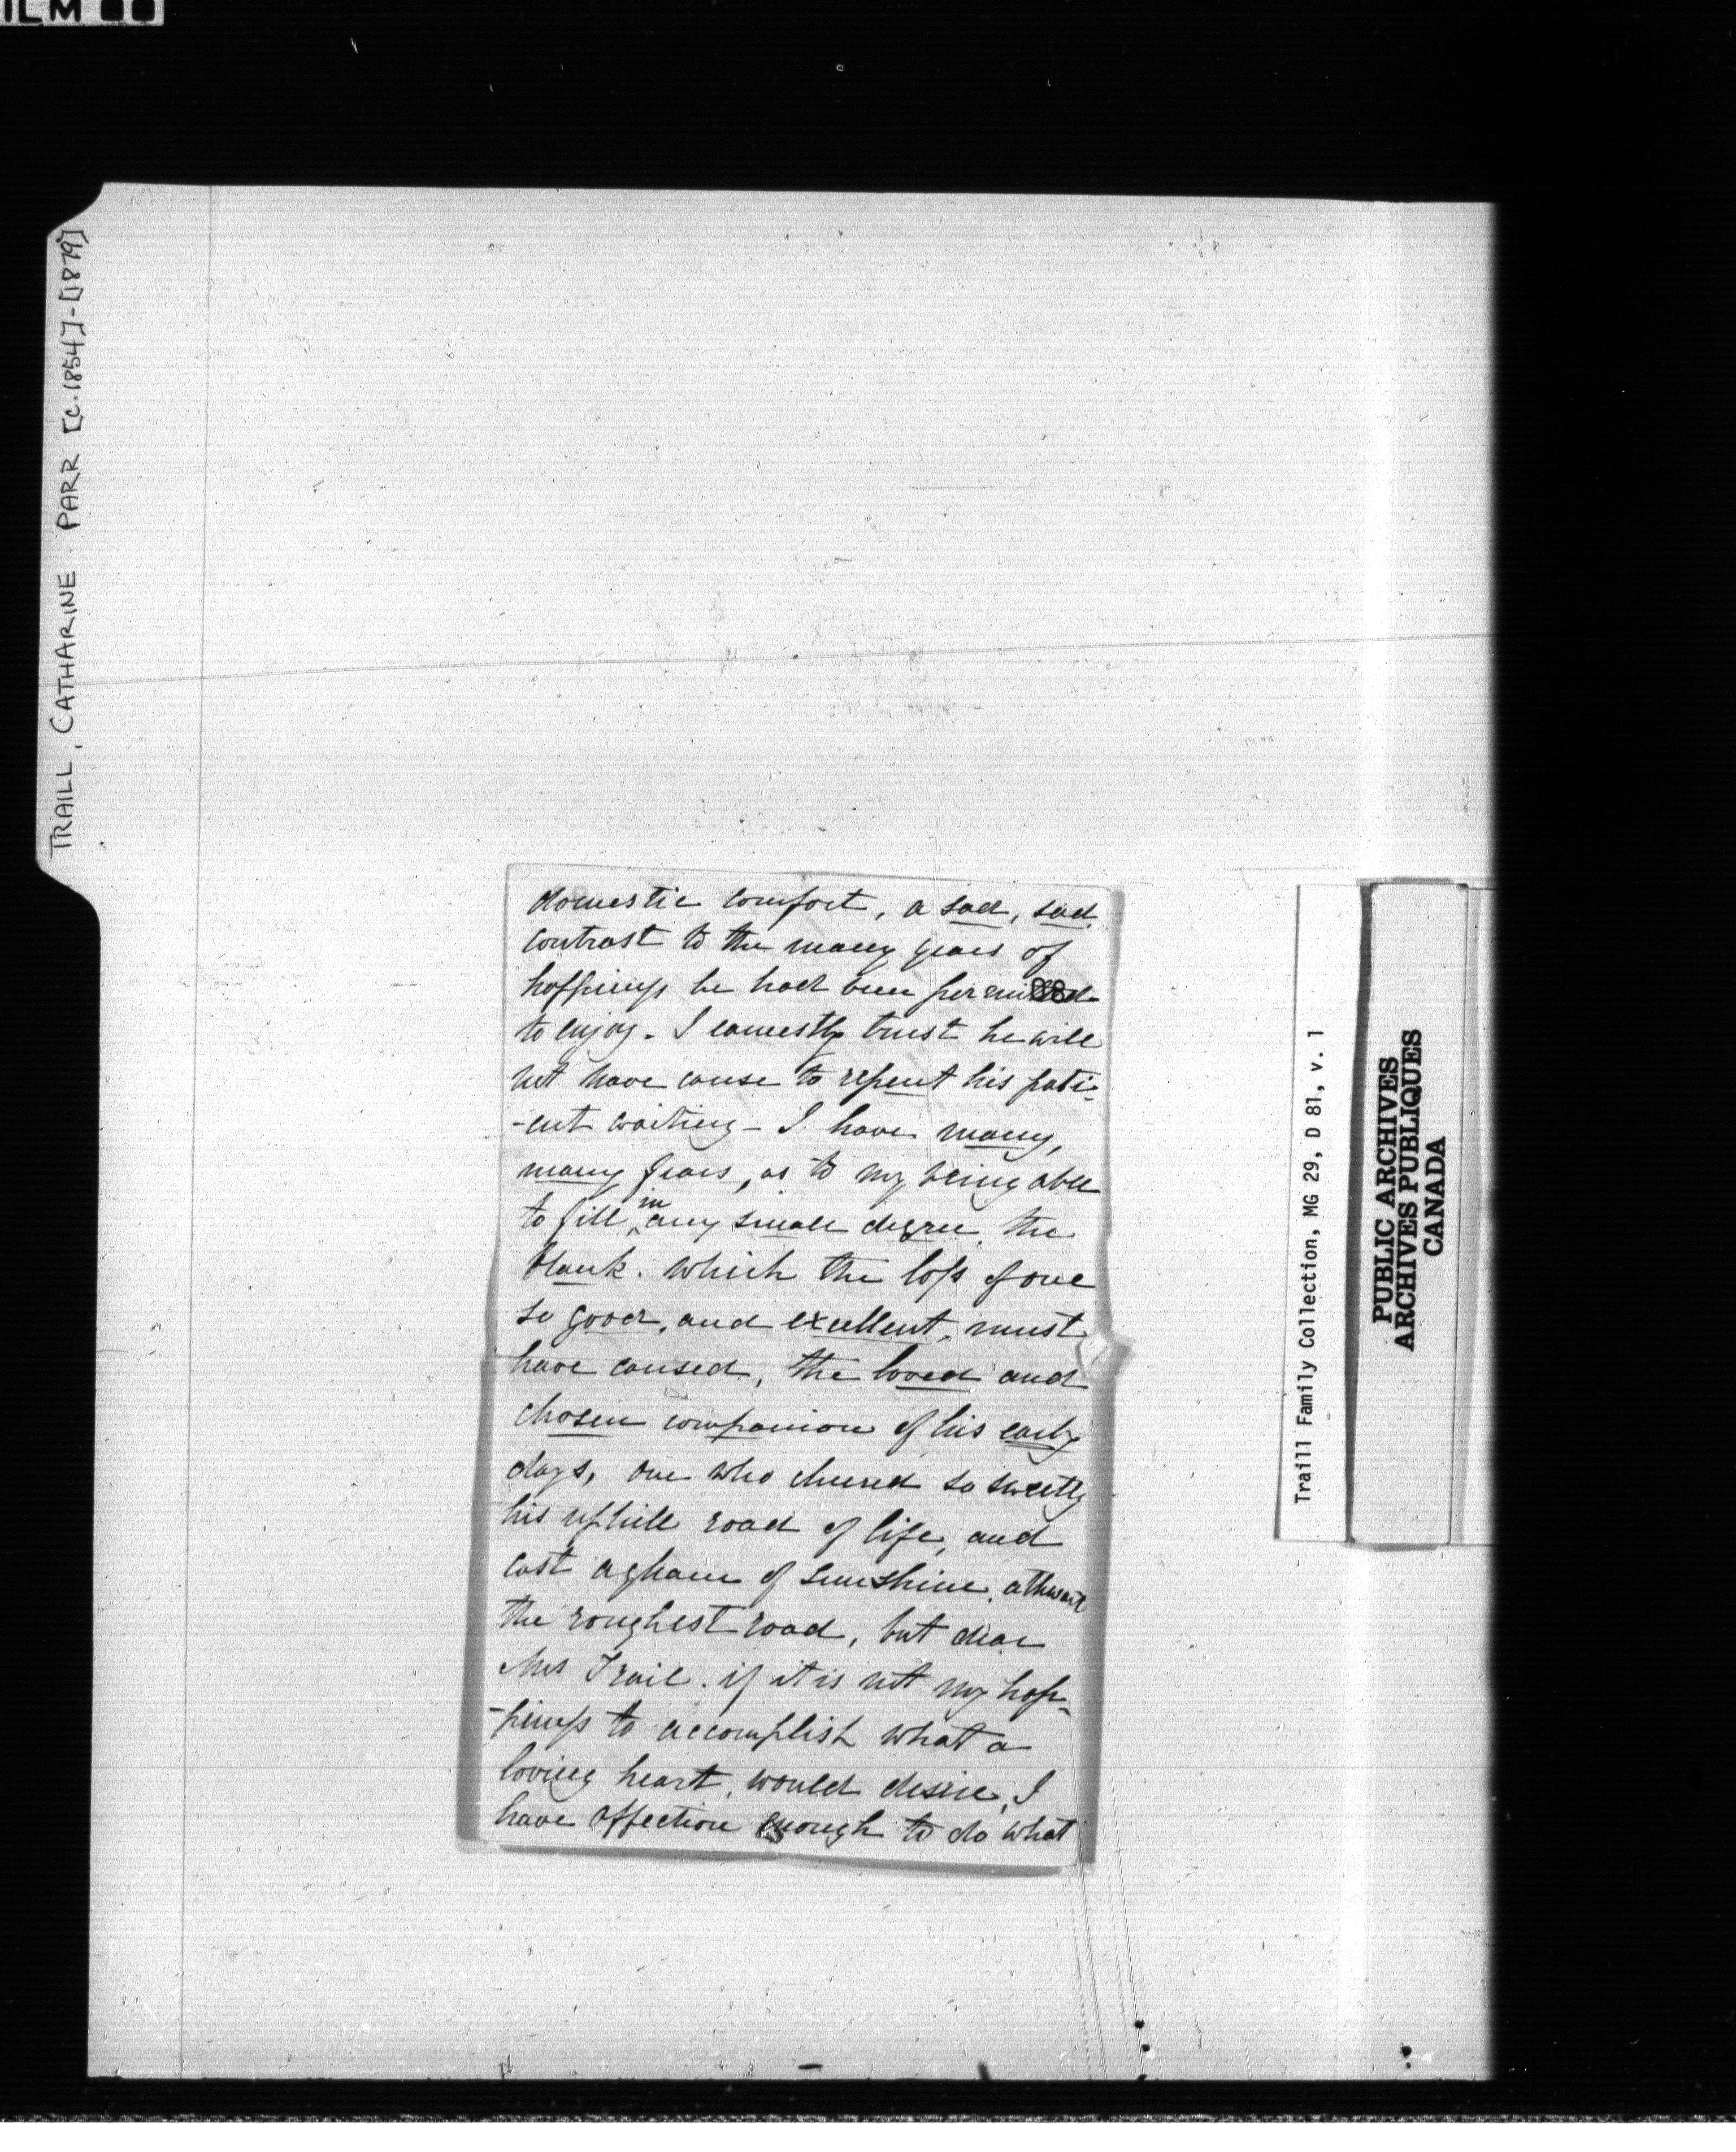 ILM
TRAILL, CATHARINE PARR [c.1854]-[1879]
domestic comfort, a sad, sad
contrast to the many years of
happiness he had been permitted
to enjoy. I earnestly trust he will
not have cause to repent his pati-
-ent waiting - I have many,
many fears, as to my being able
to fill, in any small degree, the
blank. which the loss of one
so good, and excellent, must
have caused, the loved and
chosen companion of his early
days, one who cheered so sweetly
his uphill road of life, and
cast a gleam of sunshine, athwart
the roughest road, but dear
Mrs Trail. if it is not my hap-
-piness to accomplish what a
loving heart, would desire, I
have affection enough to do what
Traill Family Collection, MG 29, D 81, v. 1
PUBLIC ARCHIVES
ARCHIVES PUBLIQUES
CANADA